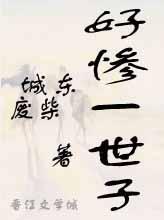 好惨一世子
东柴
城废
著
晋江文学城